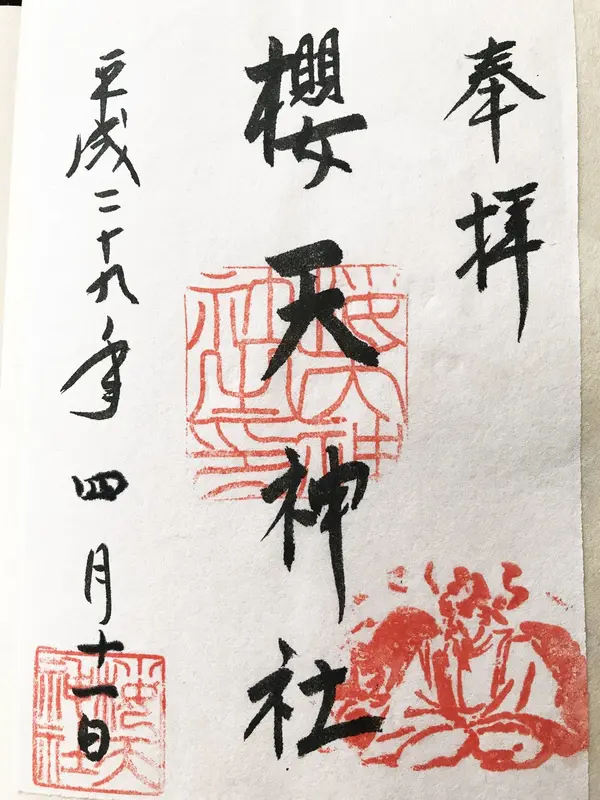 奉拝
櫻天神社
平成二十九年四月十一日
櫻天神社之印
桜天神社